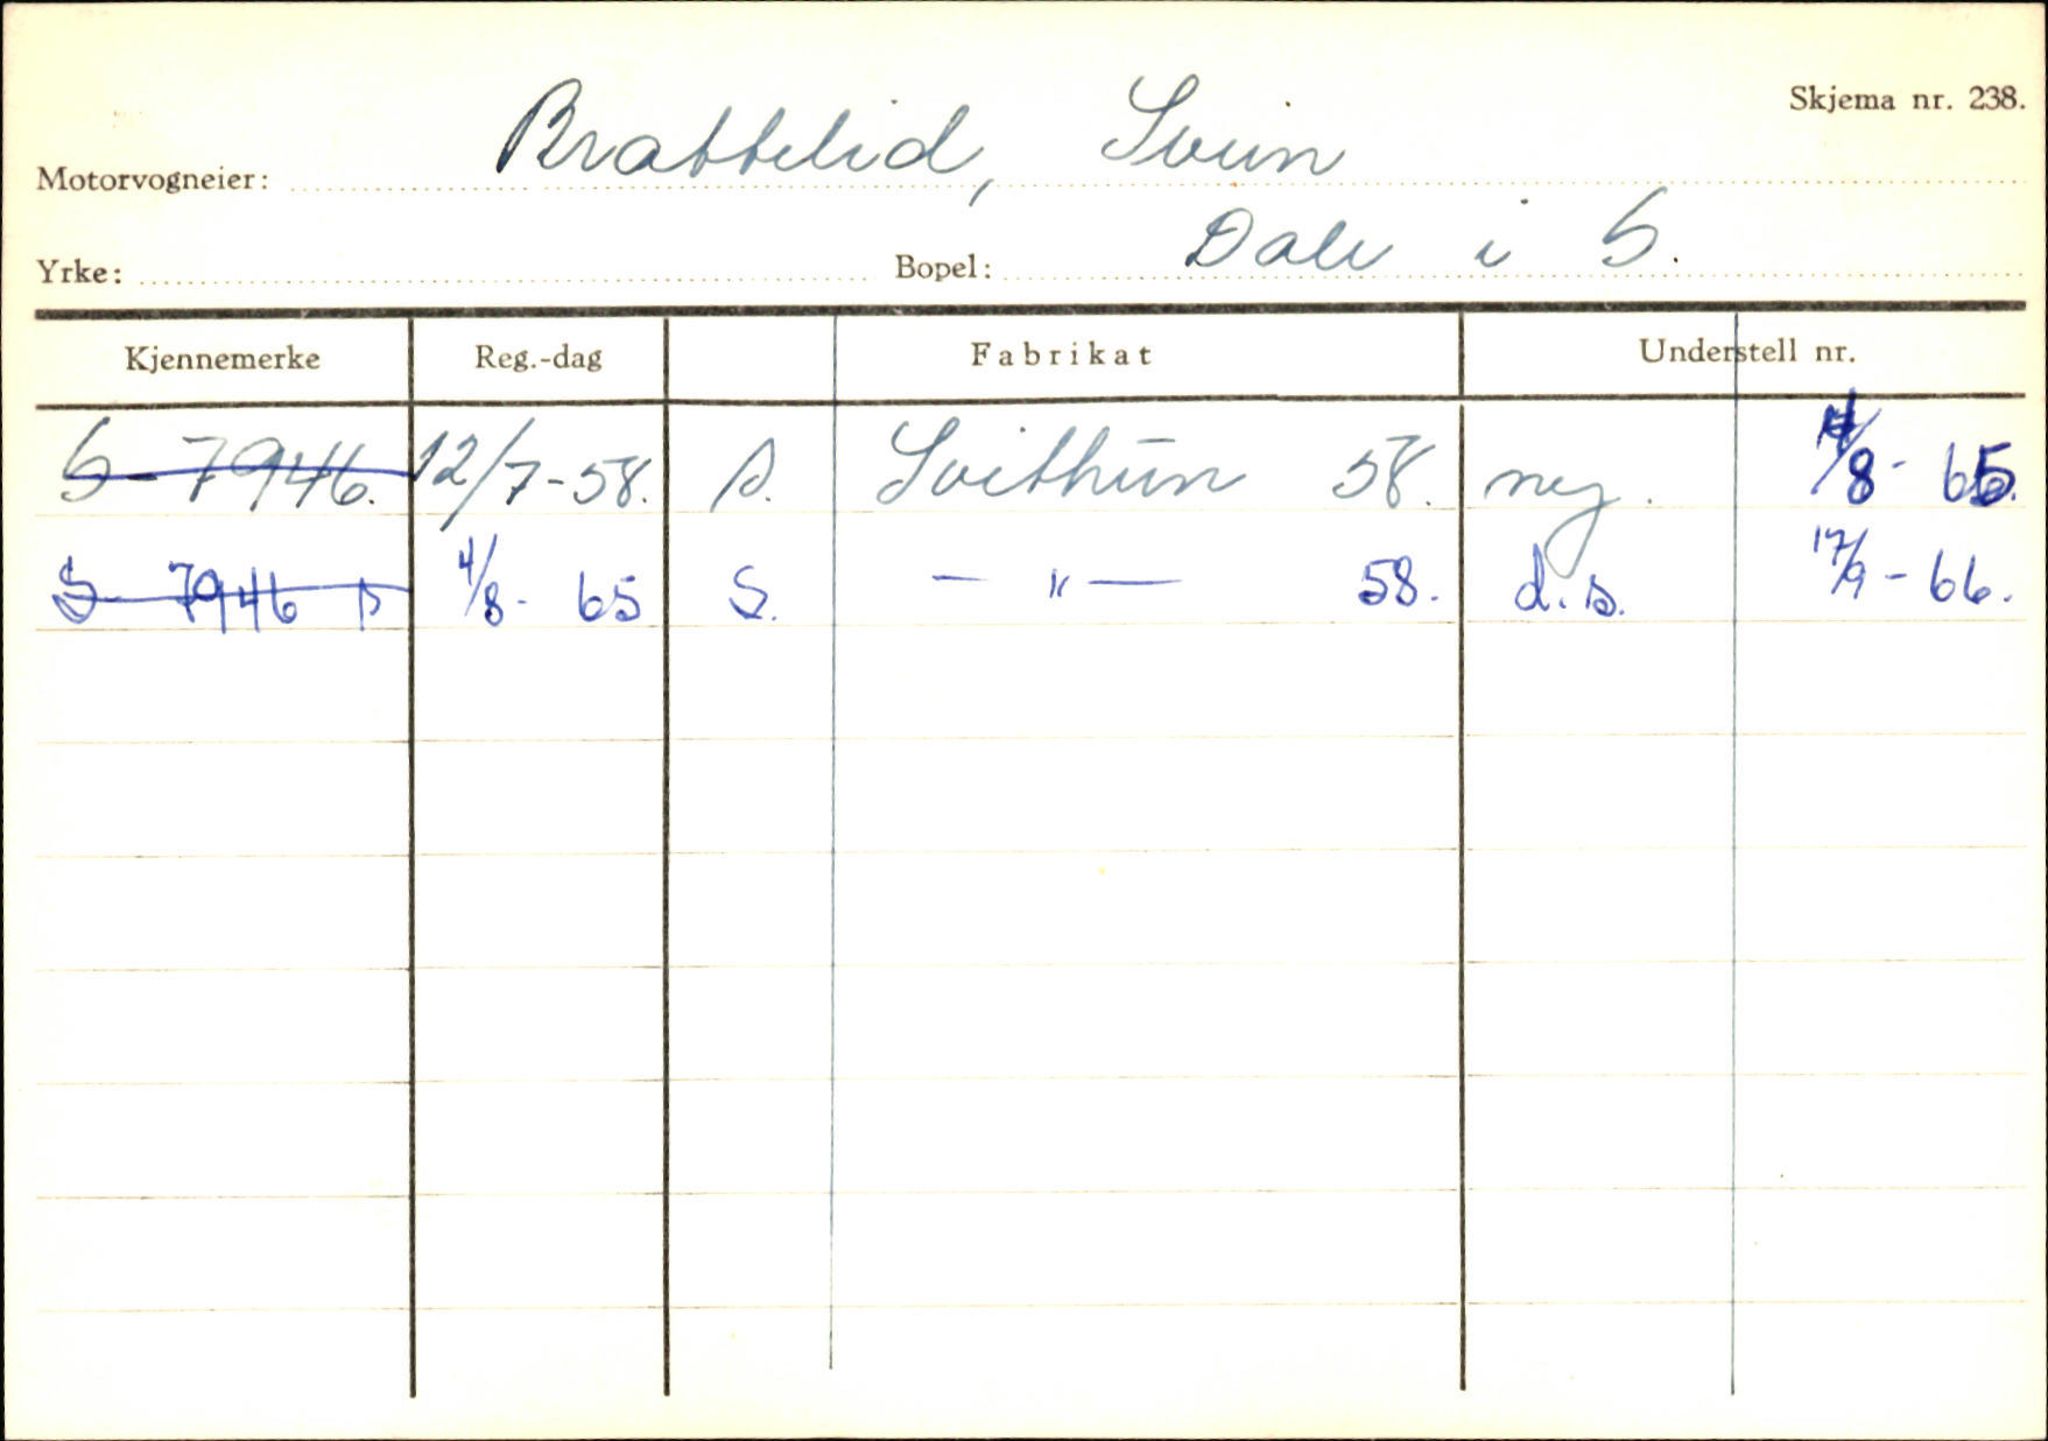 Skjema nr. 238.
Motorvogneier: Brattelid, Svein
Yrke: Bopel: Dale i S.
Kjennemerke Reg.-dag Fabrikat Understell nr.
S-7946. 12/7-58. s. Svithun 58. nej. 4/8- 65.
S- 7946 s 4/8- 65 S. — " — 58. d.s. 17/9-66.